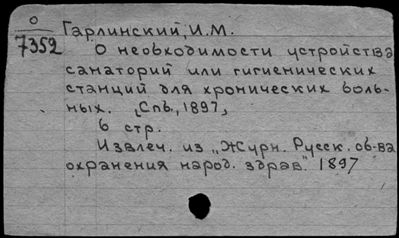 О
7352
Гарлинский, И.М.
О необходимости устройства
санаторий или гигиенических
станций для хронических боль-
ных. [Спб, 1897,
6 стр.
Извлеч. из „Журн. Русск. об-ва
охранения народ. здрав." 1897